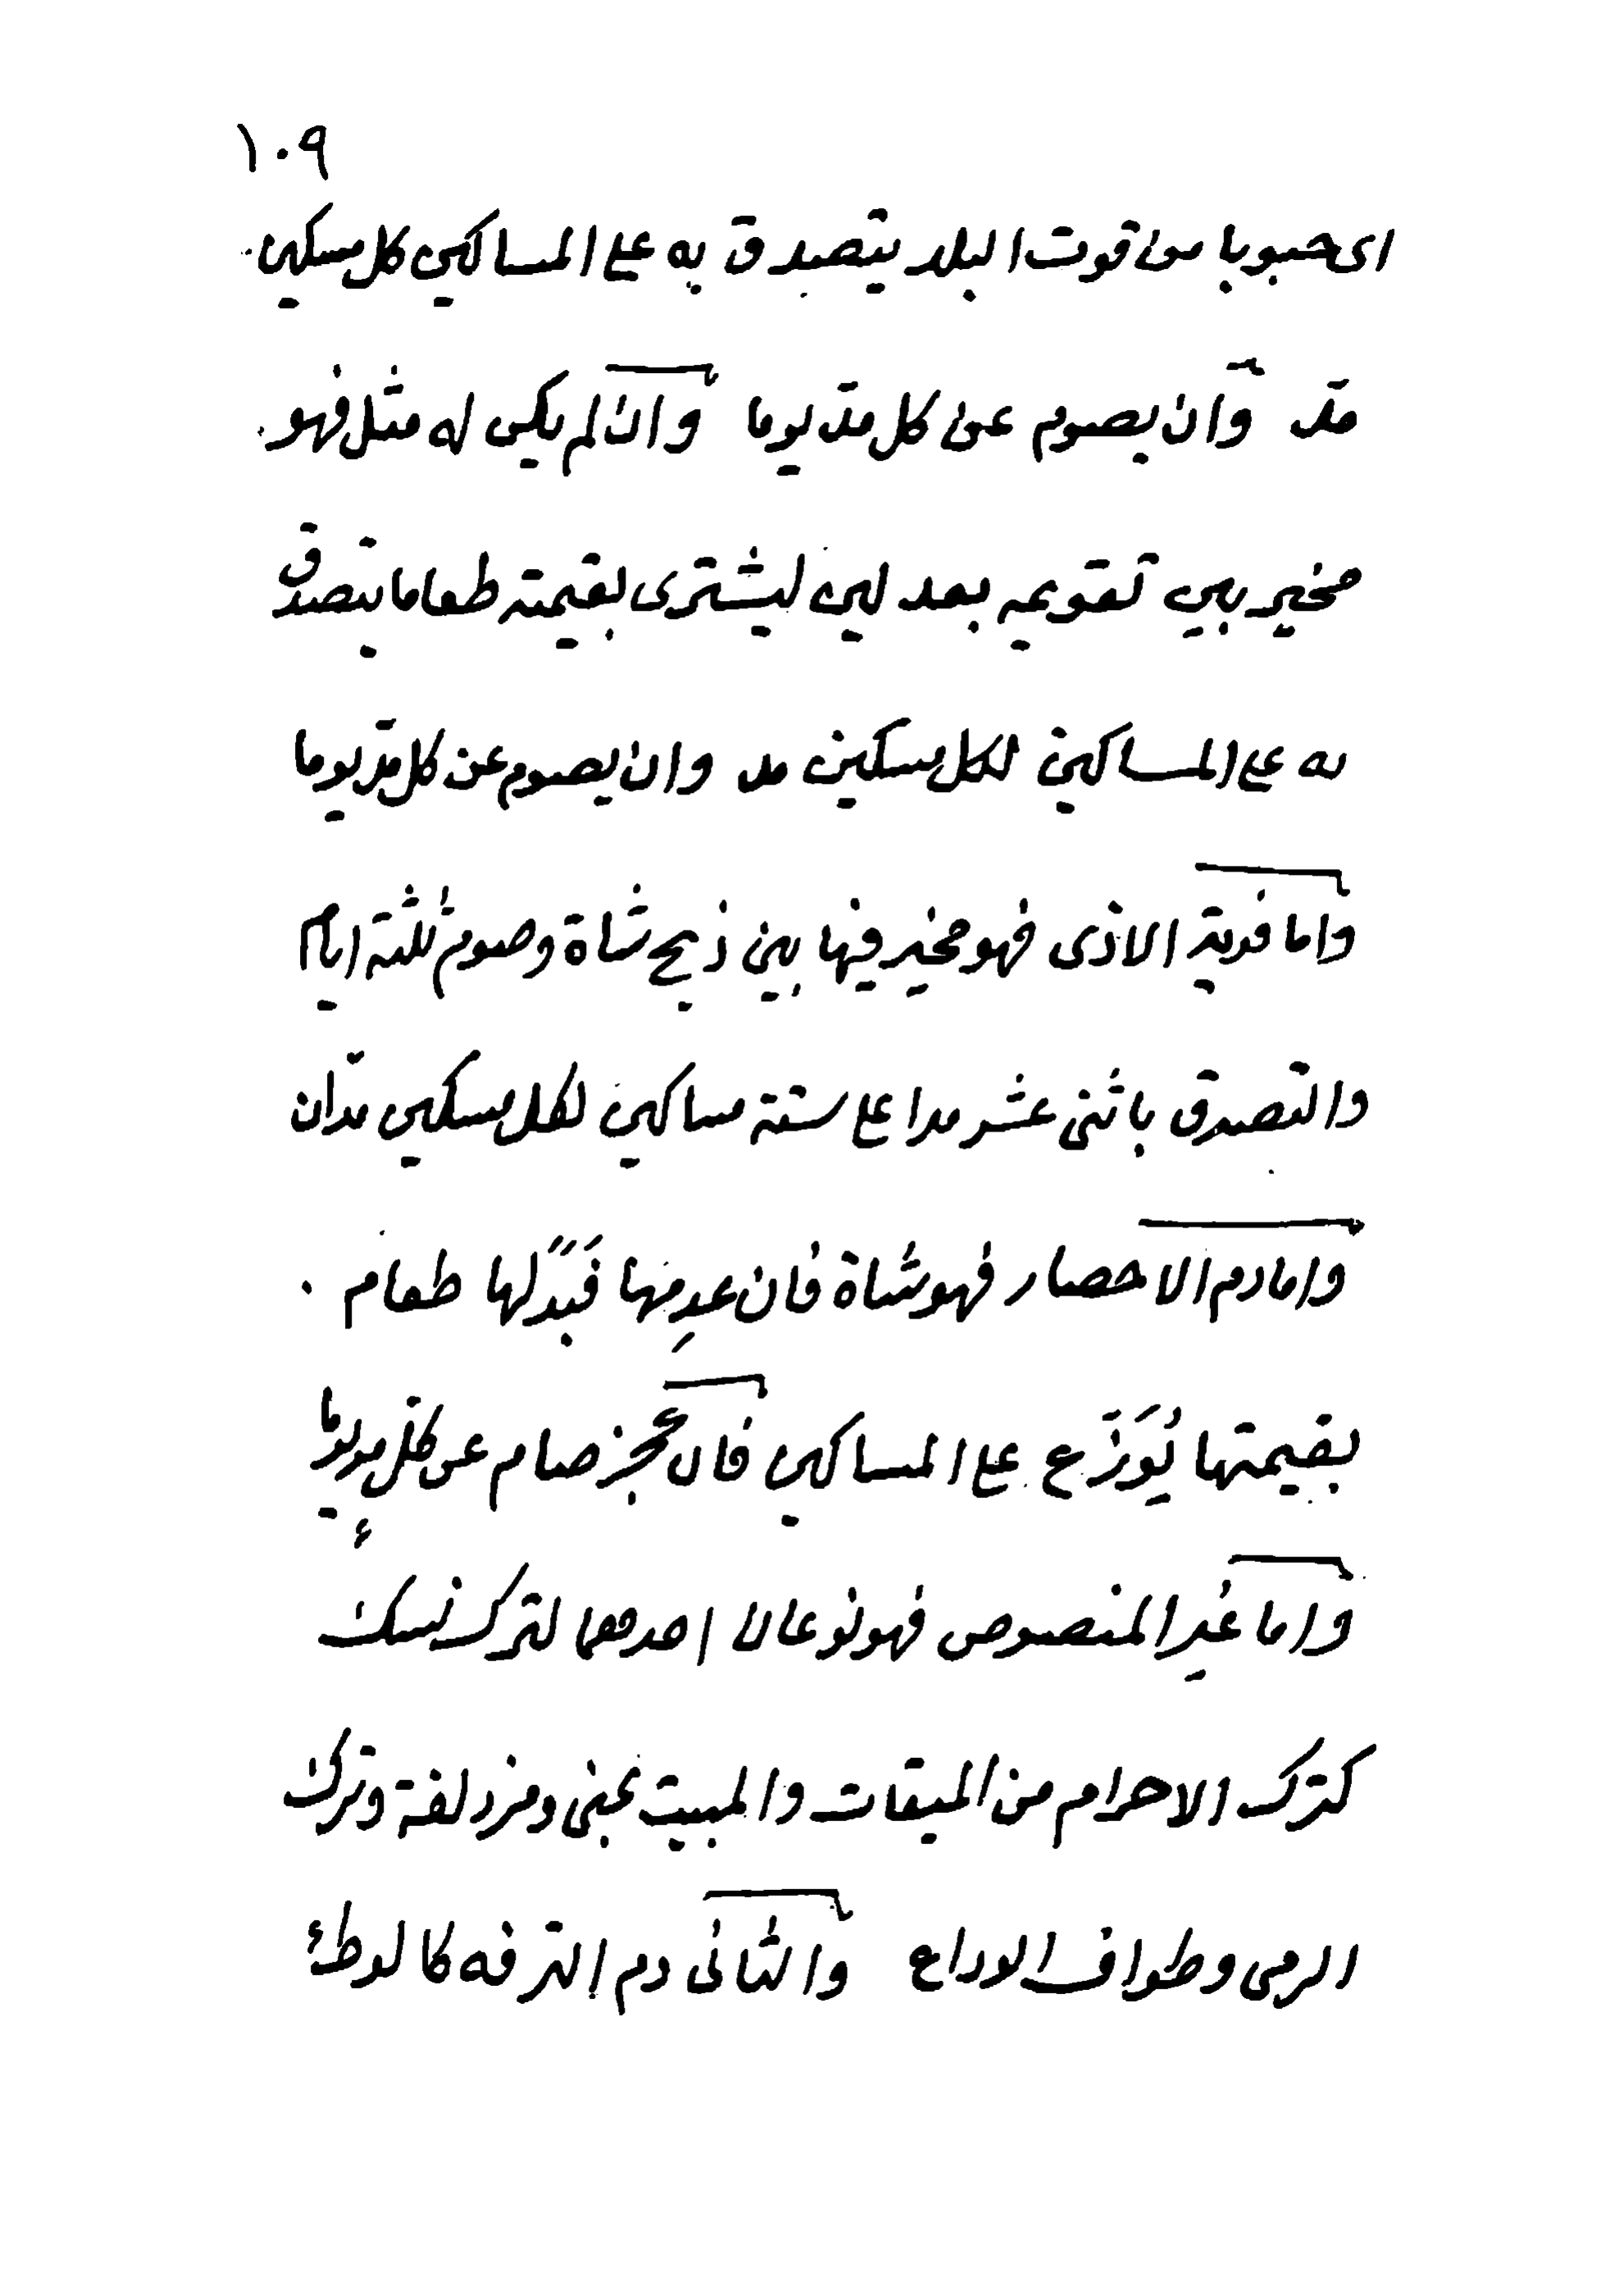 ١٠٩
اى حبوبا من قوت البلد يتصدق به على المساكين كل مسكين
مدّ وان يصوم عن كل مدّ يوما وان لم يكن له مثل فهو
مخير بين تقويمه بعدلين ليشترى بقيمته طعاما يتصدق
به على المساكين لكل مسكين مد وان يصوم عن كل مدّ يوما
واما فدية الاذى فهو مخير فيها بين ذبح شاة وصوم ثلثة ايام
والتصدق باثنى عشر مدا على ستة مساكين لكل مسكين مدّان
وامادم الاحصار فهو شاة فان عدِمها فبَدَلُها طعام
بقيمتها يُوَزَّع على المساكين فان عجز صام عن كل مد يوما
واما غير المنصوص فهو نوعان احدهما لترك نسك
كترك الاحرام من الميقات والمبيت بمنى ومزدلفة وترك
الرمى وطواف الوداع والثانى دم الترفه كالوطئ